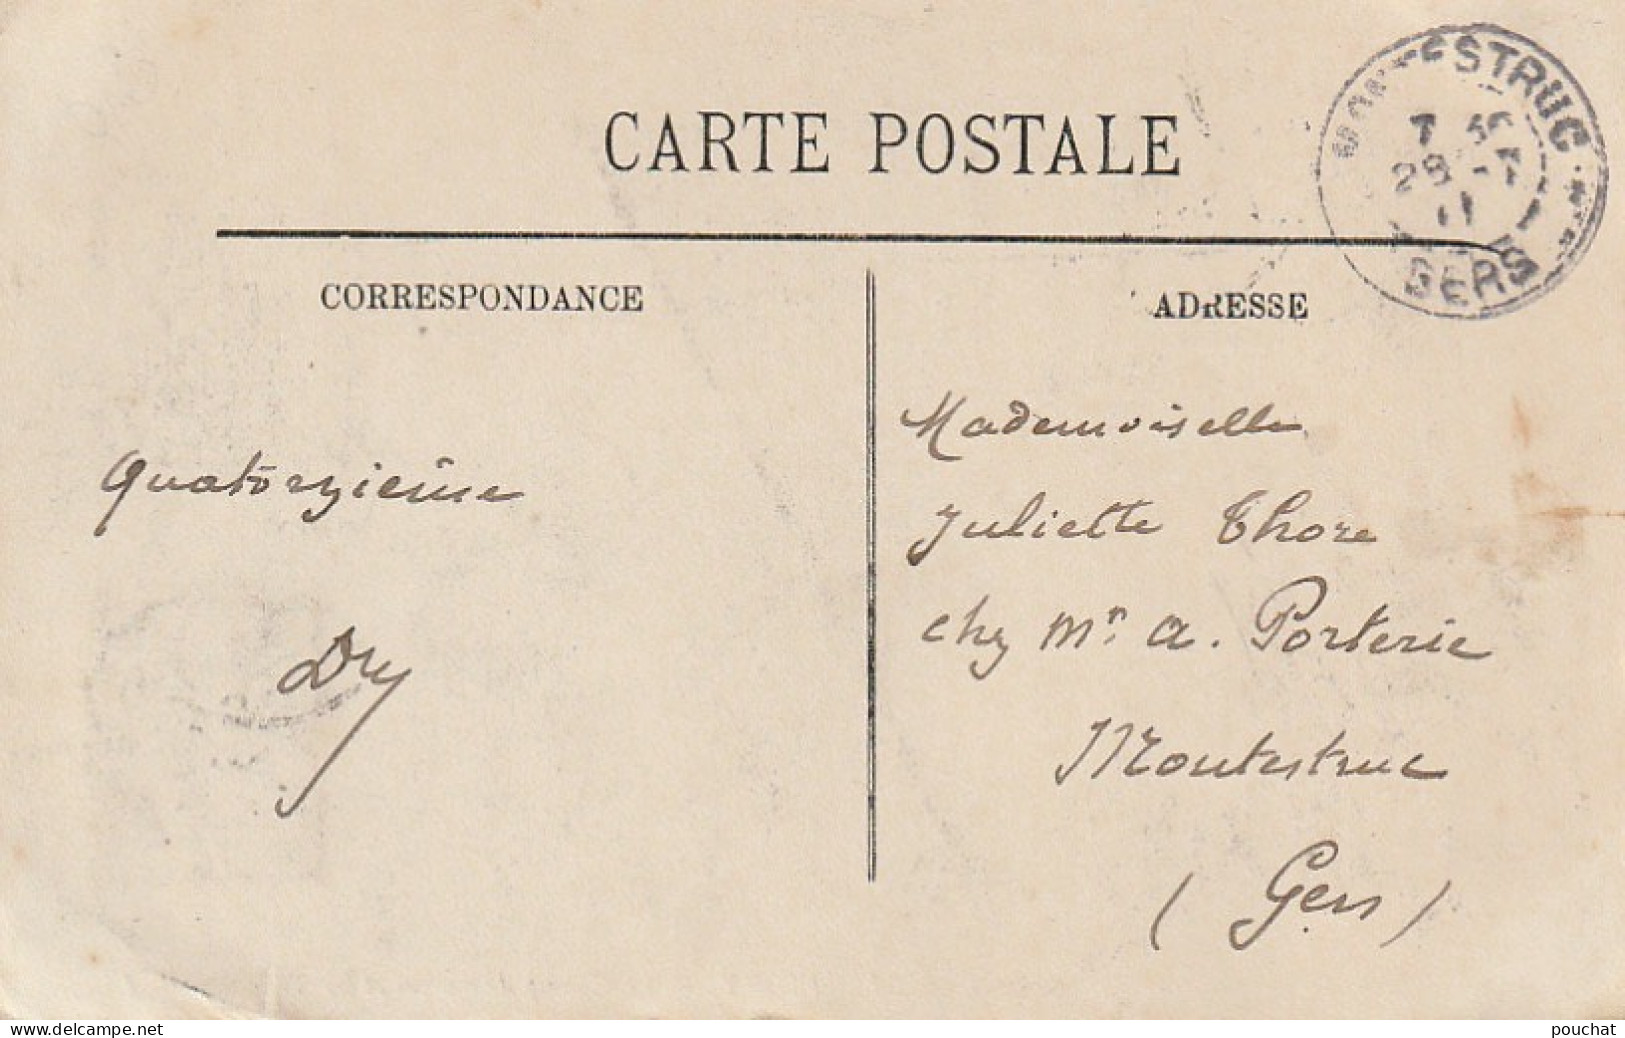 CARTE POSTALE
MONTESTRUC
7 30
28 -7
11
GERS
CORRESPONDANCE
ADRESSE
Quatorzième
Mademoiselle
Juliette Thore
chez Mr. A. Porterie
Montestruc
(Gers)
www.delcampe.net
pouchat